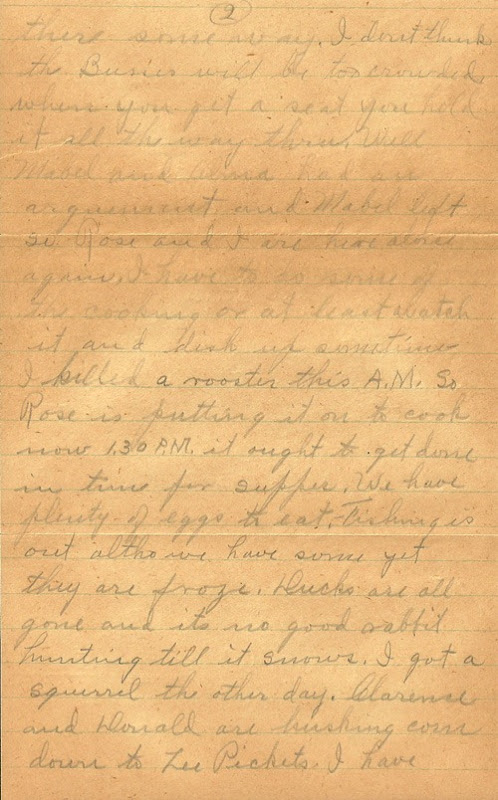 2
there some way. I dont think
the Busses will be to crowded
when you get a seat you hold
it all the way thru. Well
Mabel and Alma had an
arguement and Mabel left
so Rose and I are here alone
again. I have to do some of
the cooking or at least watch
it and dish up sometime
I killed a rooster this A.M. So
Rose is putting it on to cook
now 1.30 P.M. it ought to get done
in time for supper. We have
plenty of eggs to eat. Fishing is
out altho we have some yet
they are froze. Ducks are all
gone and its no good rabbit
hunting till it snows. I got a
squirrel the other day. Clarence
and Donald are husking corn
down to Lee Pickets. I have